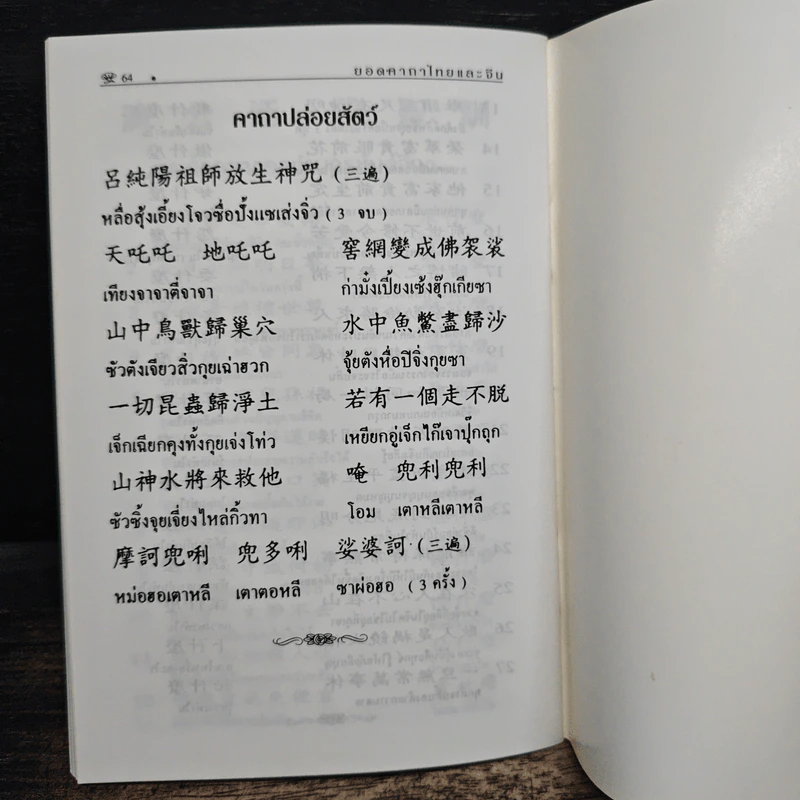 64 ยอดคาถาไทยและจีน
คาถาปล่อยสัตว์
呂純陽祖師放生神咒 (三遍)
หลื่อสุ้งเอี้ยงโจวซื่อปั้งแซเส่งจิ่ว ( 3 จบ )
天吒吒 地吒吒 窖網變成佛袈裟
เทียงจาจาตี่จาจา ก่ามั๋งเปี้ยงเซ้งฮุ๊กเกียซา
山中鳥獸歸巢穴 水中魚鱉盡歸沙
ซัวตังเจียวสิ่วกุยเฉ่าฮวก จุ้ยตังหื่อปิจิ่งกุยซา
一切昆蟲歸淨土 若有一個走不脱
เจ็กเฉียกคุงทั้งกุยเจ่งโท่ว เหยียกอู่เจ็กไก๊เจาปุ๊กถุก
山神水將來救他 唵 兜利兜利
ซัวซิ้งจุยเจี่ยงไหล่กิ้วทา โอม เตาหลีเตาหลี
摩訶兜唎 兜多唎 娑婆訶 (三遍)
หม่อฮอเตาหลี เตาตอหลี ซาผ่อฮอ ( 3 ครั้ง )